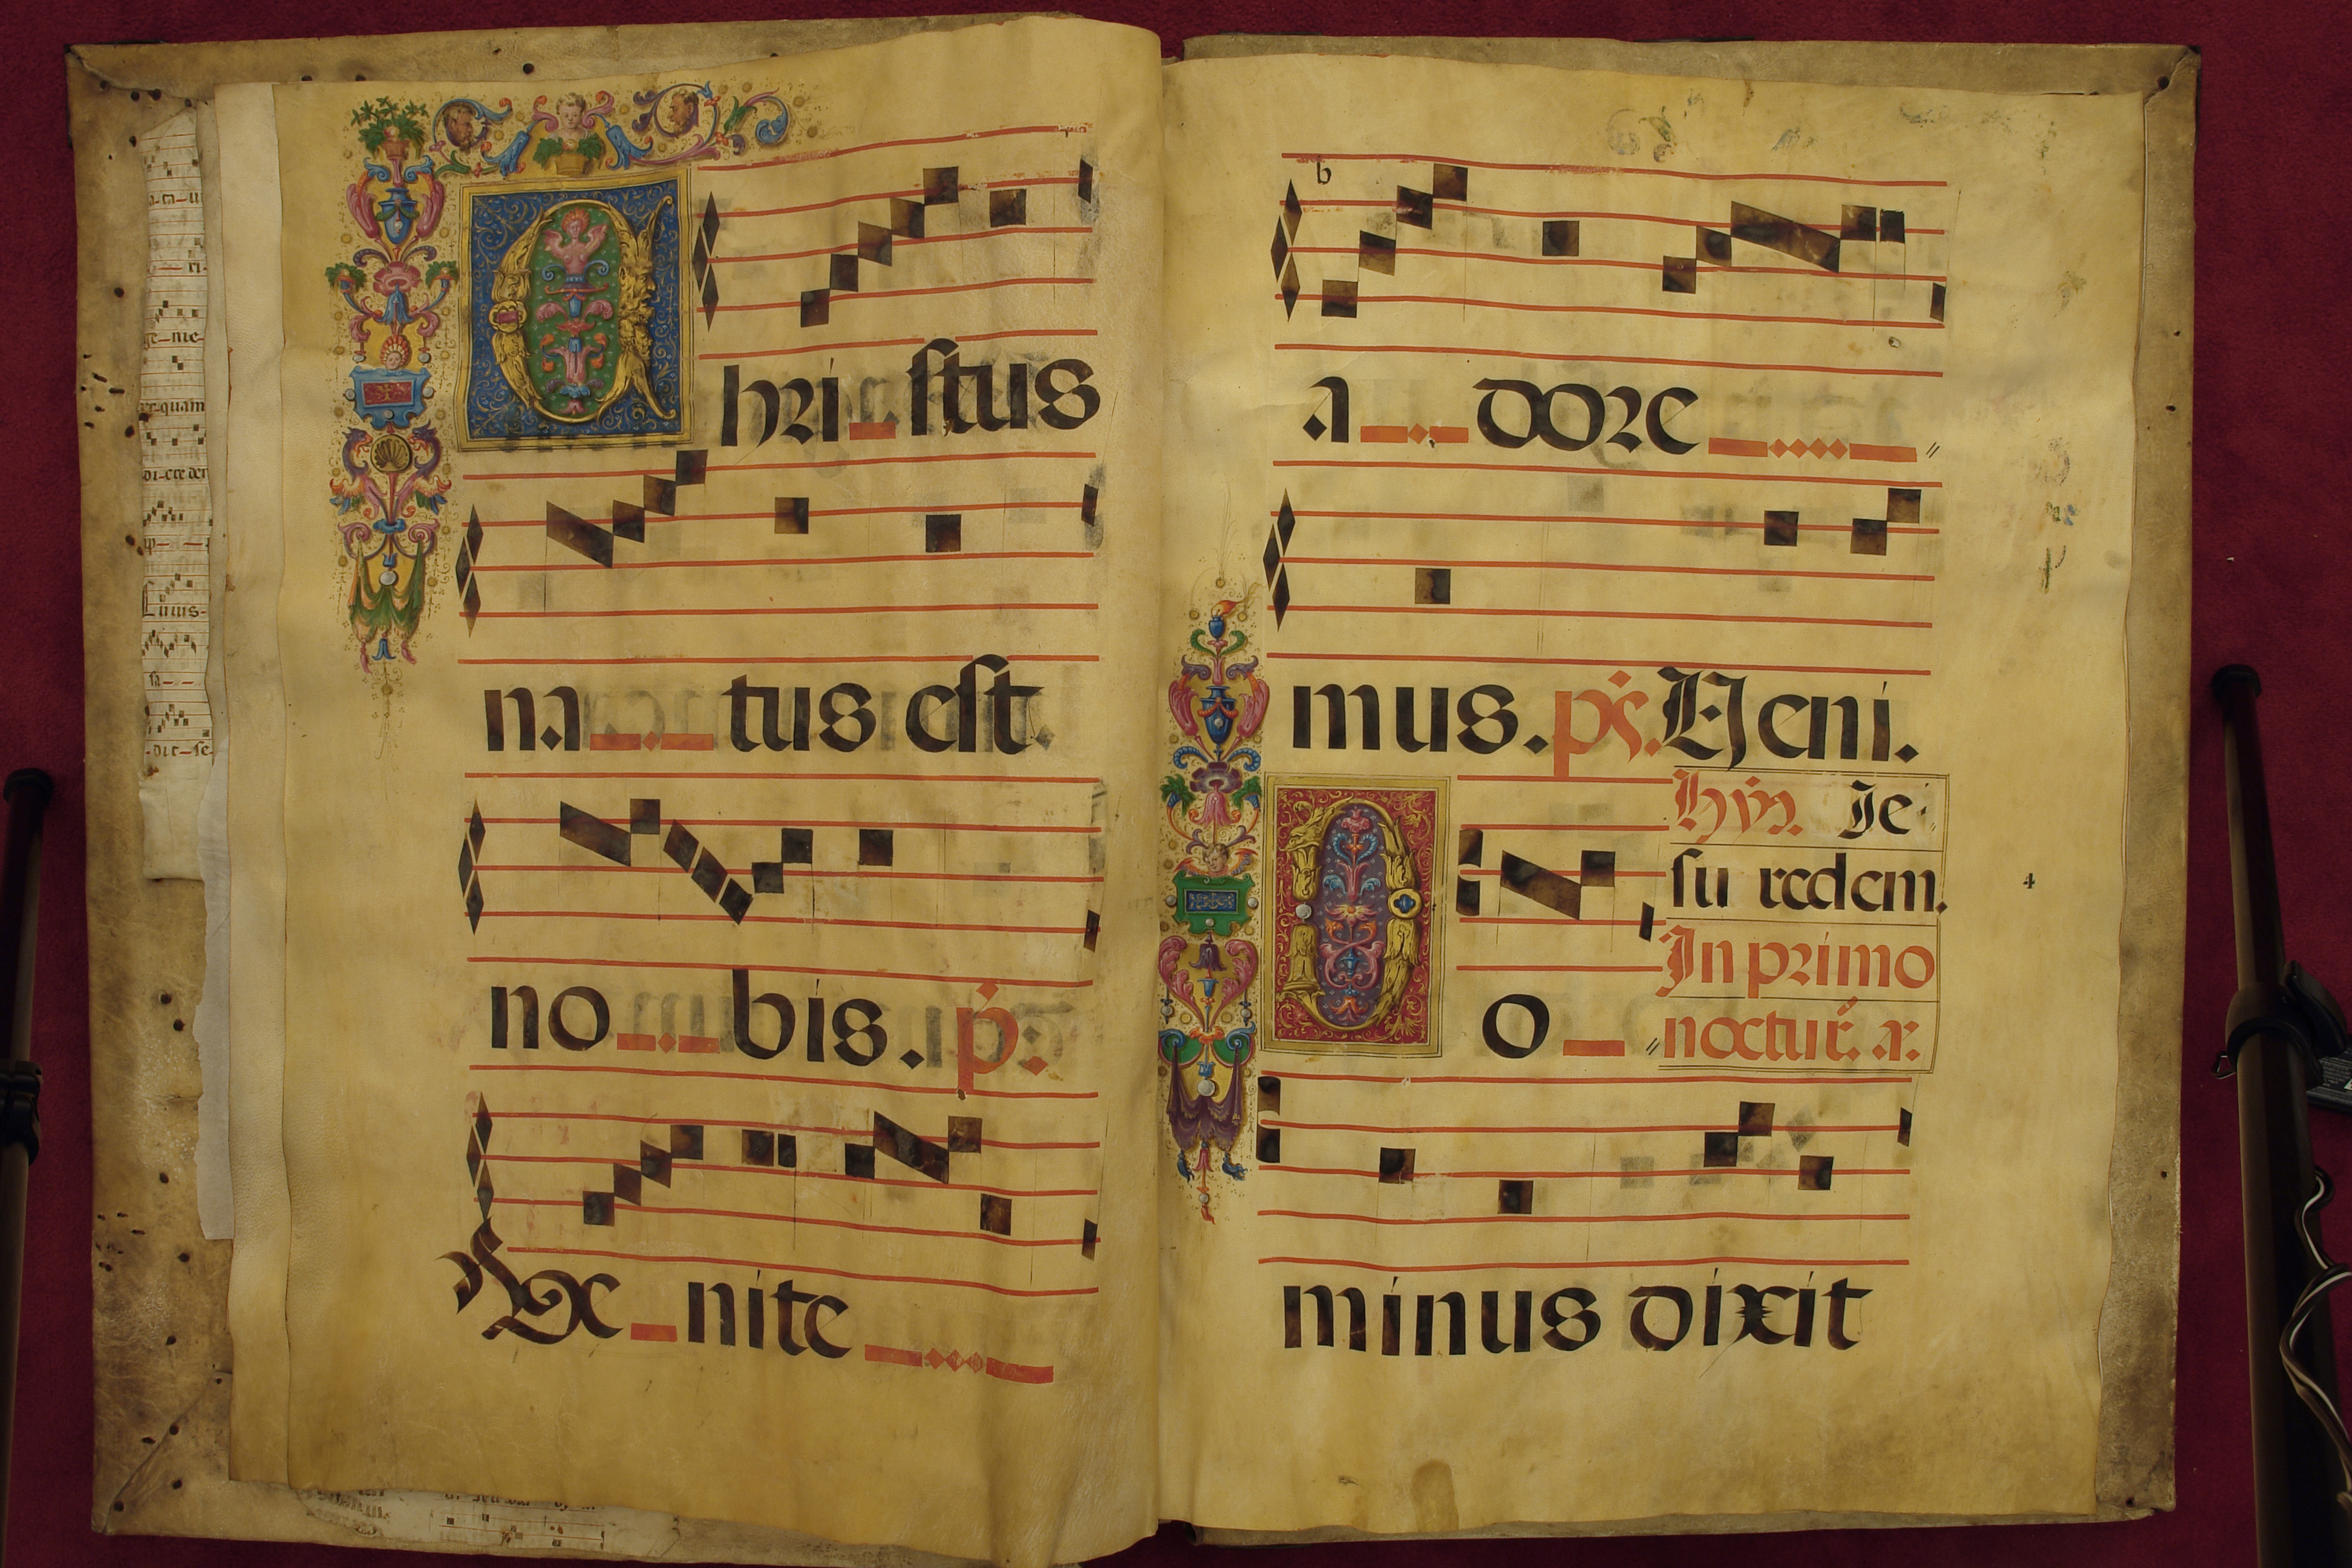 Christus
na tus est
no bis. p.
Ve nite
a dore
mus. ps. Veni.
hym. Je
su redem.
In primo
noctur. a.
4
Do
minus dixit